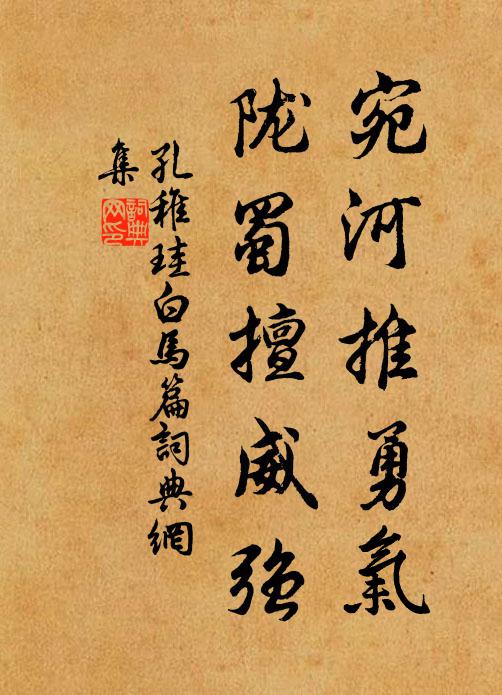 宛河推勇氣
陇蜀擅威强
孔稚珪白馬篇詞典網
集
詞典
网印